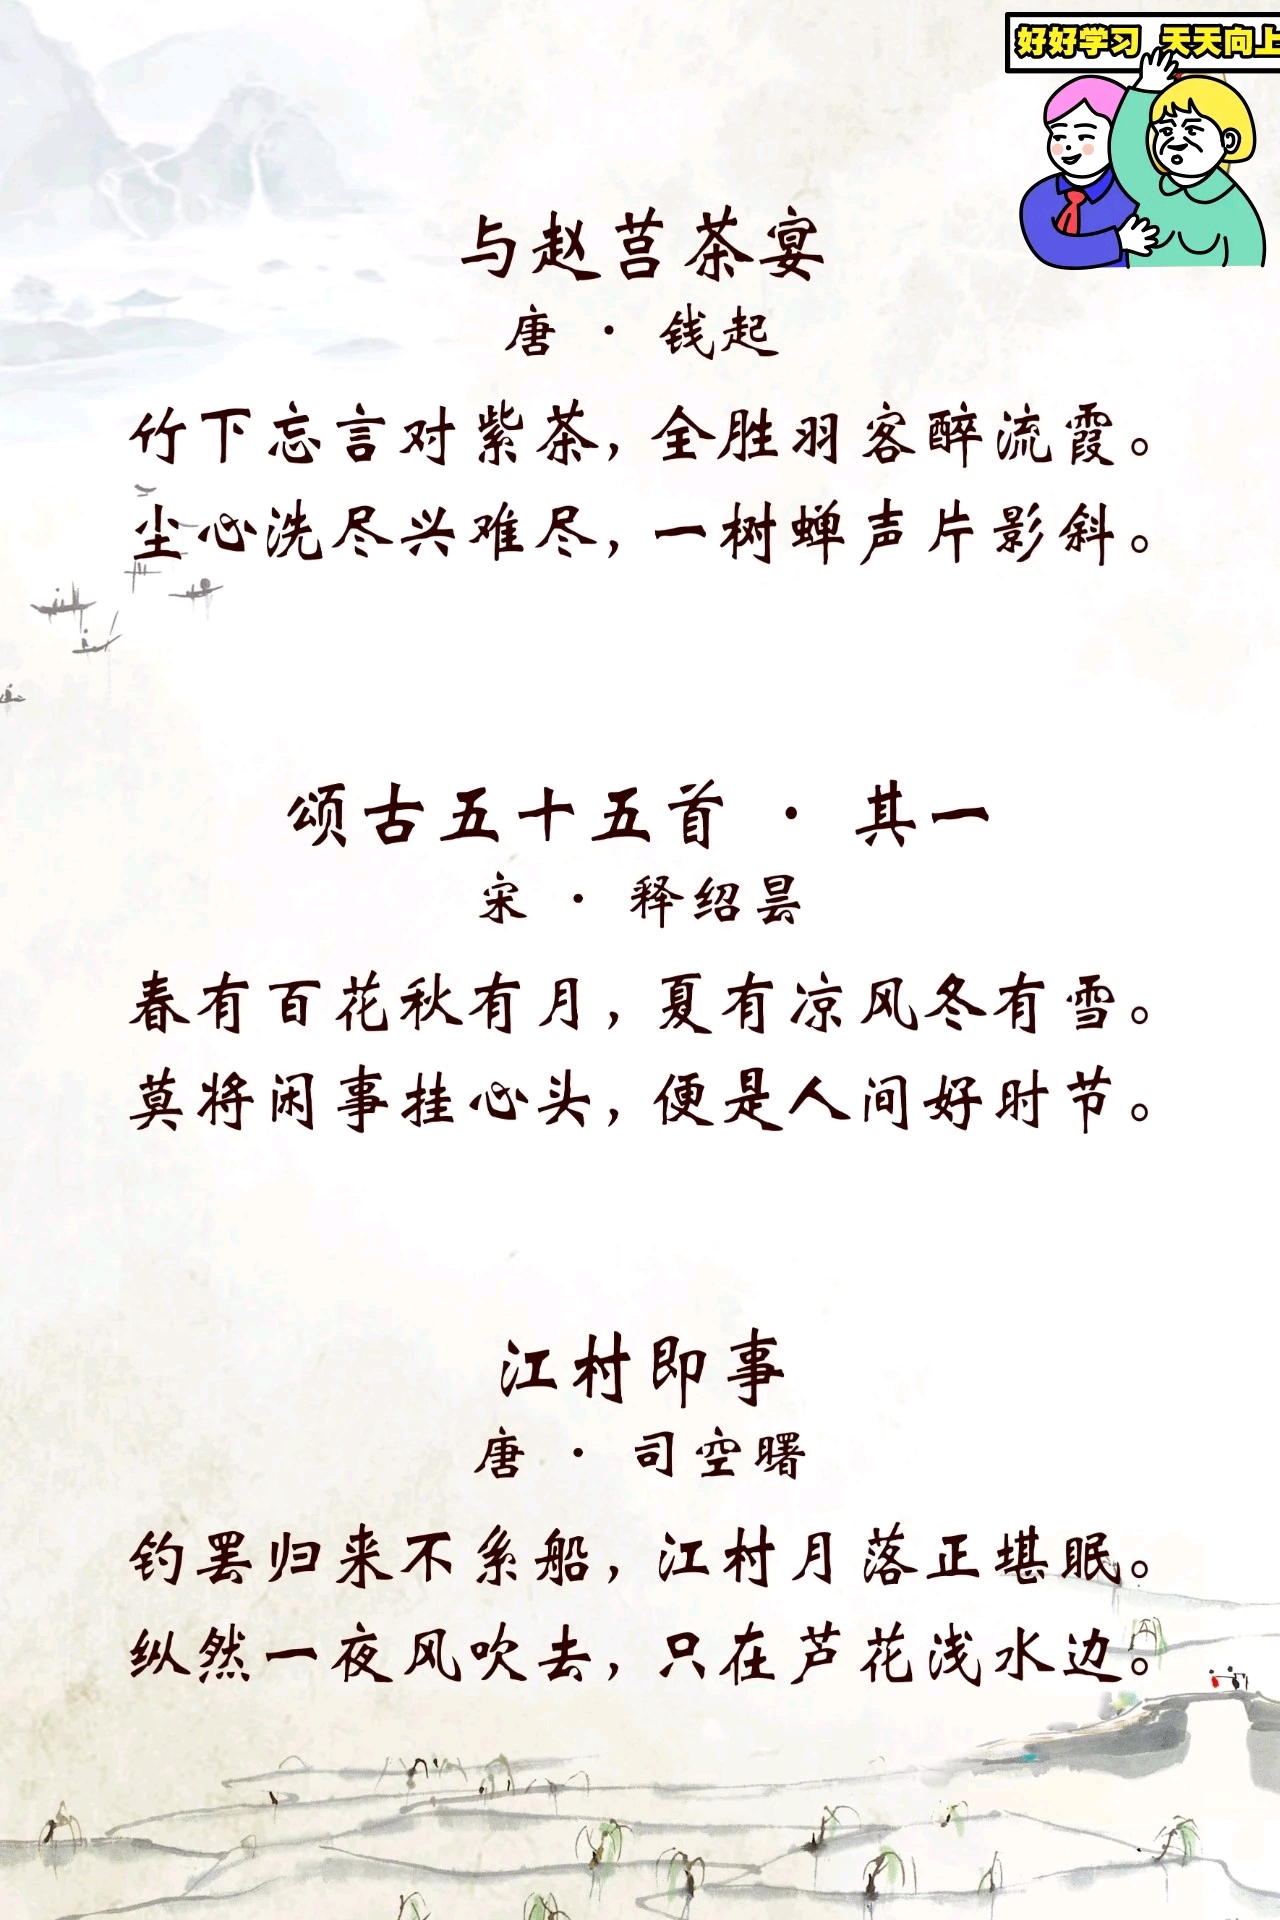 好好学习 天天向上
与赵莒茶宴
唐 · 钱起
竹下忘言对紫茶，全胜羽客醉流霞。
尘心洗尽兴难尽，一树蝉声片影斜。
颂古五十五首 · 其一
宋 · 释绍昙
春有百花秋有月，夏有凉风冬有雪。
莫将闲事挂心头，便是人间好时节。
江村即事
唐 · 司空曙
钓罢归来不系船，江村月落正堪眠。
纵然一夜风吹去，只在芦花浅水边。